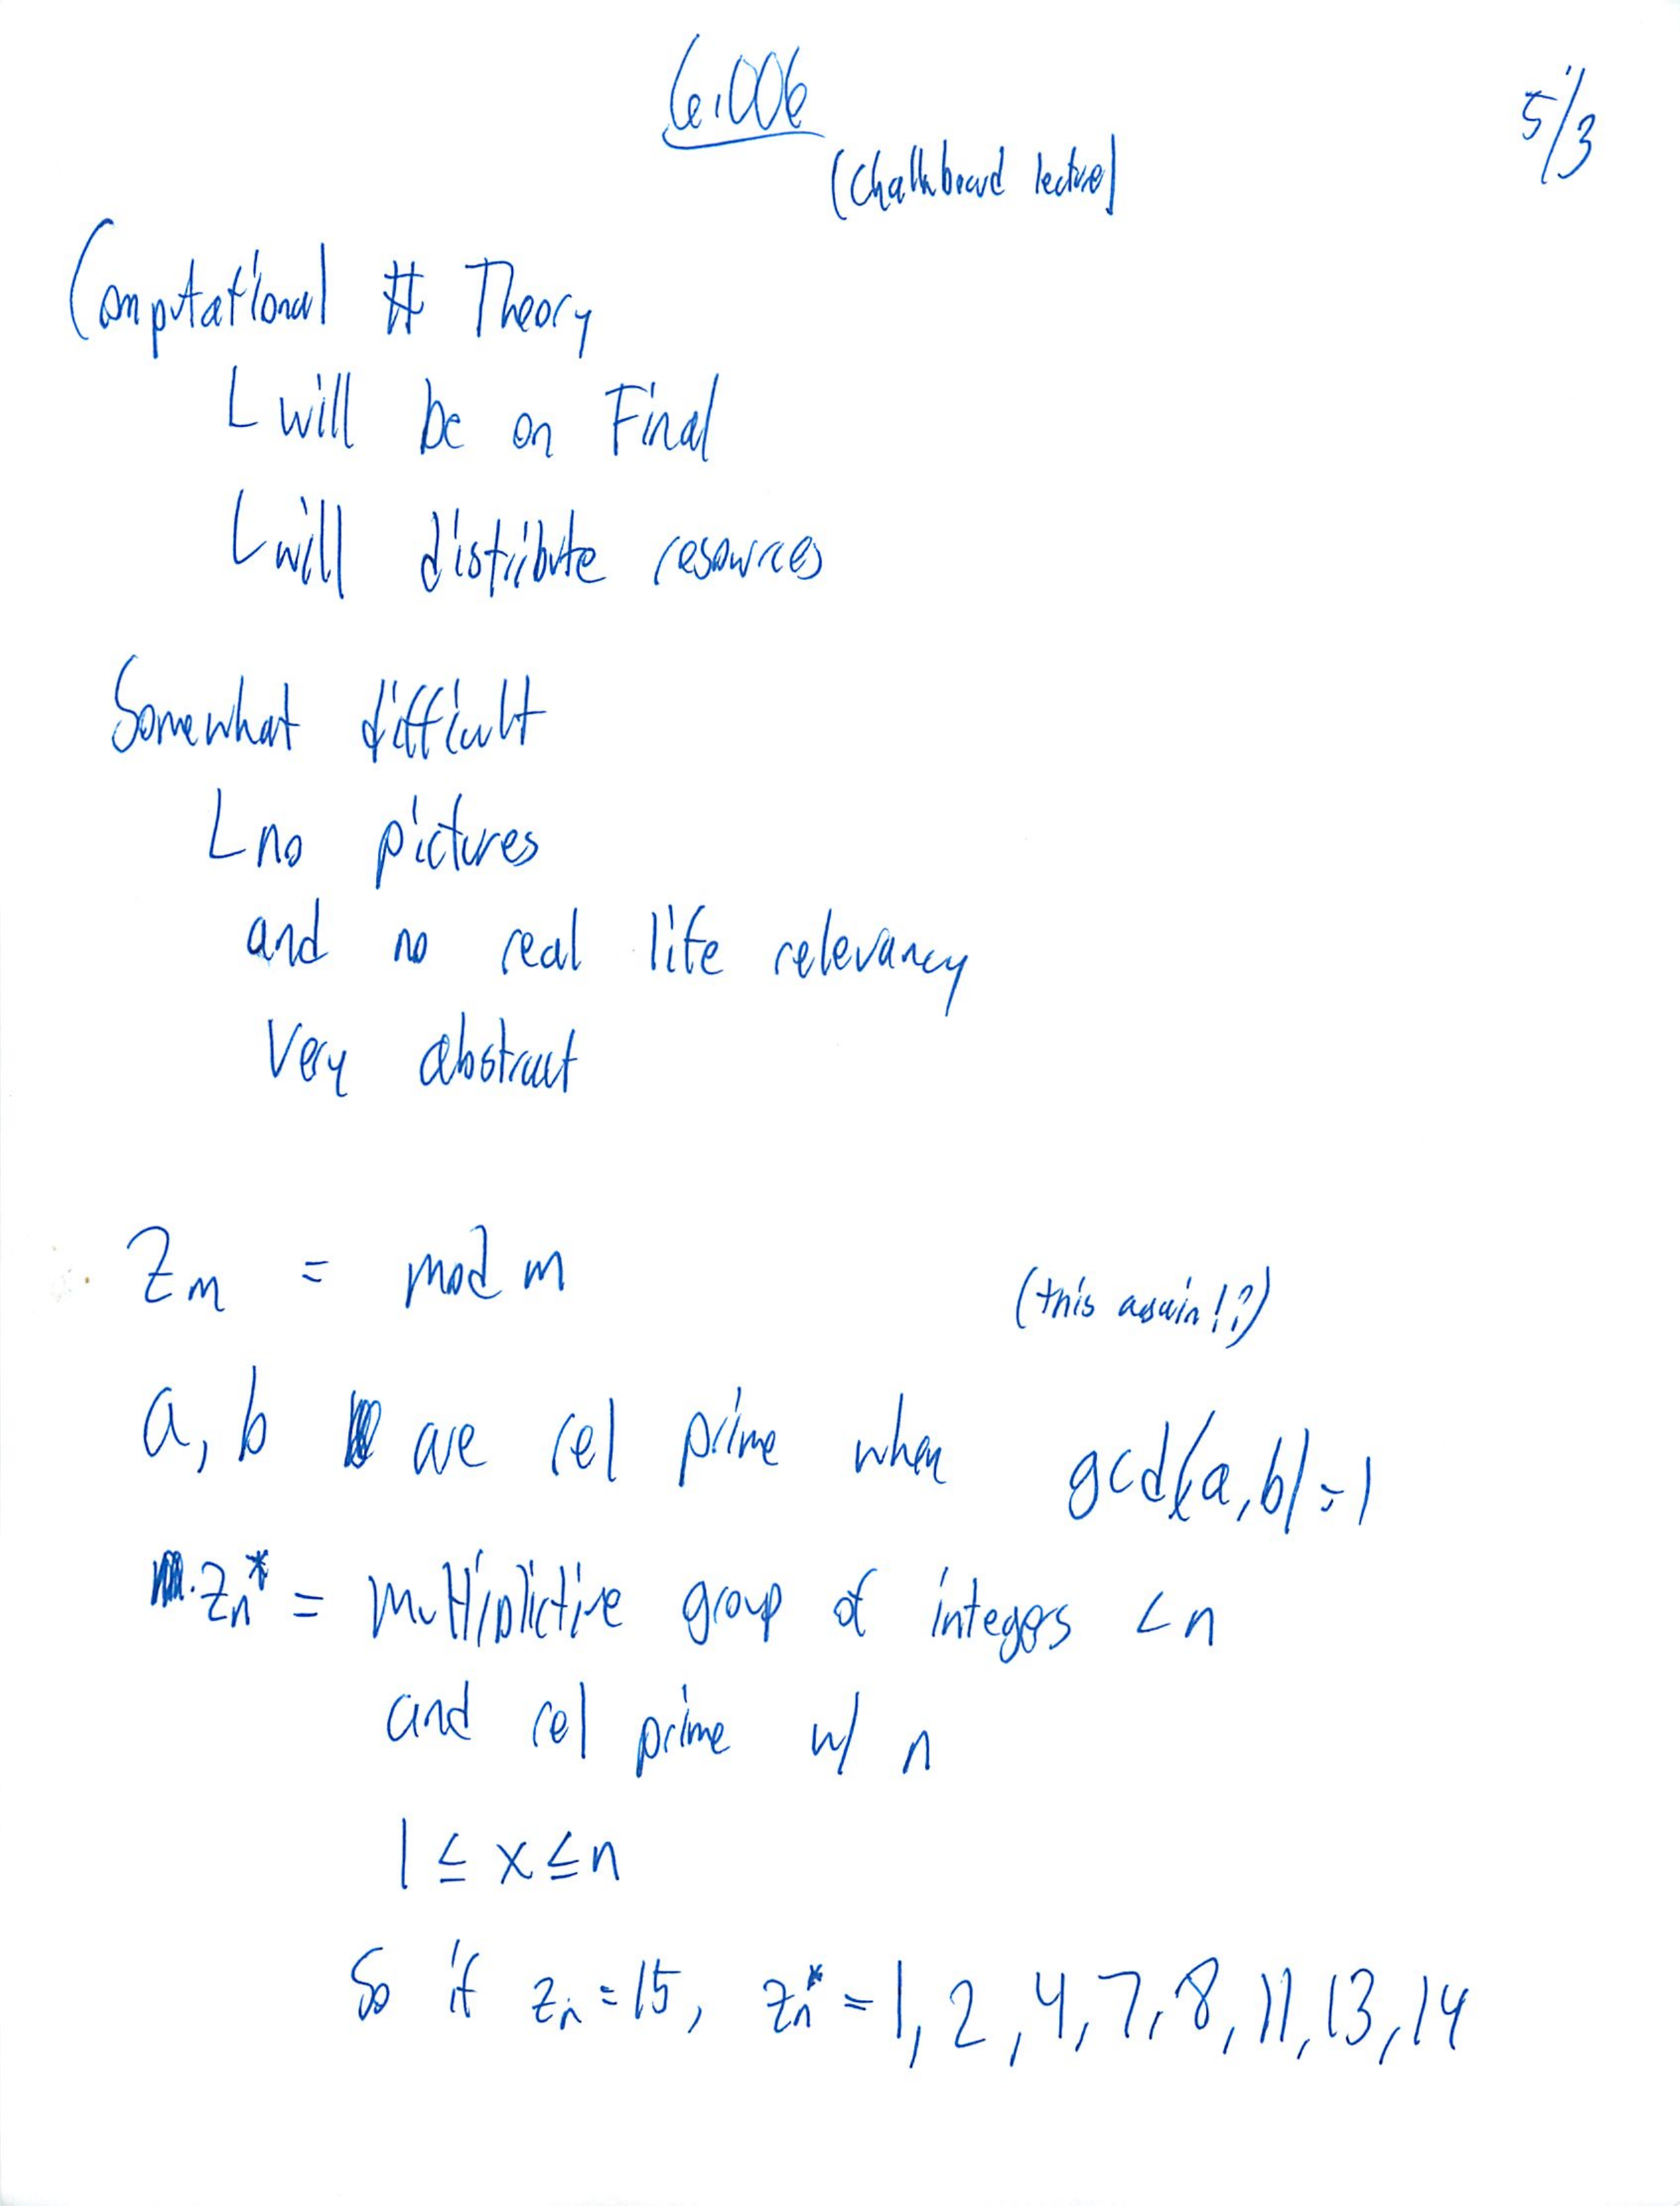 6.006
5/3
(Chalkboard lecture)
Computational # Theory
L will be on Final
L will distribute resources
Somewhat difficult
L no pictures
and no real life relevancy
Very abstract
Zm = mod m
(this again!?)
a, b are rel prime when gcd(a,b)=1
Zn* = Multiplictive group of integers < n
and rel prime w/ n
1 ≤ x ≤ n
So if Zn = 15, Zn* = 1, 2, 4, 7, 8, 11, 13, 14